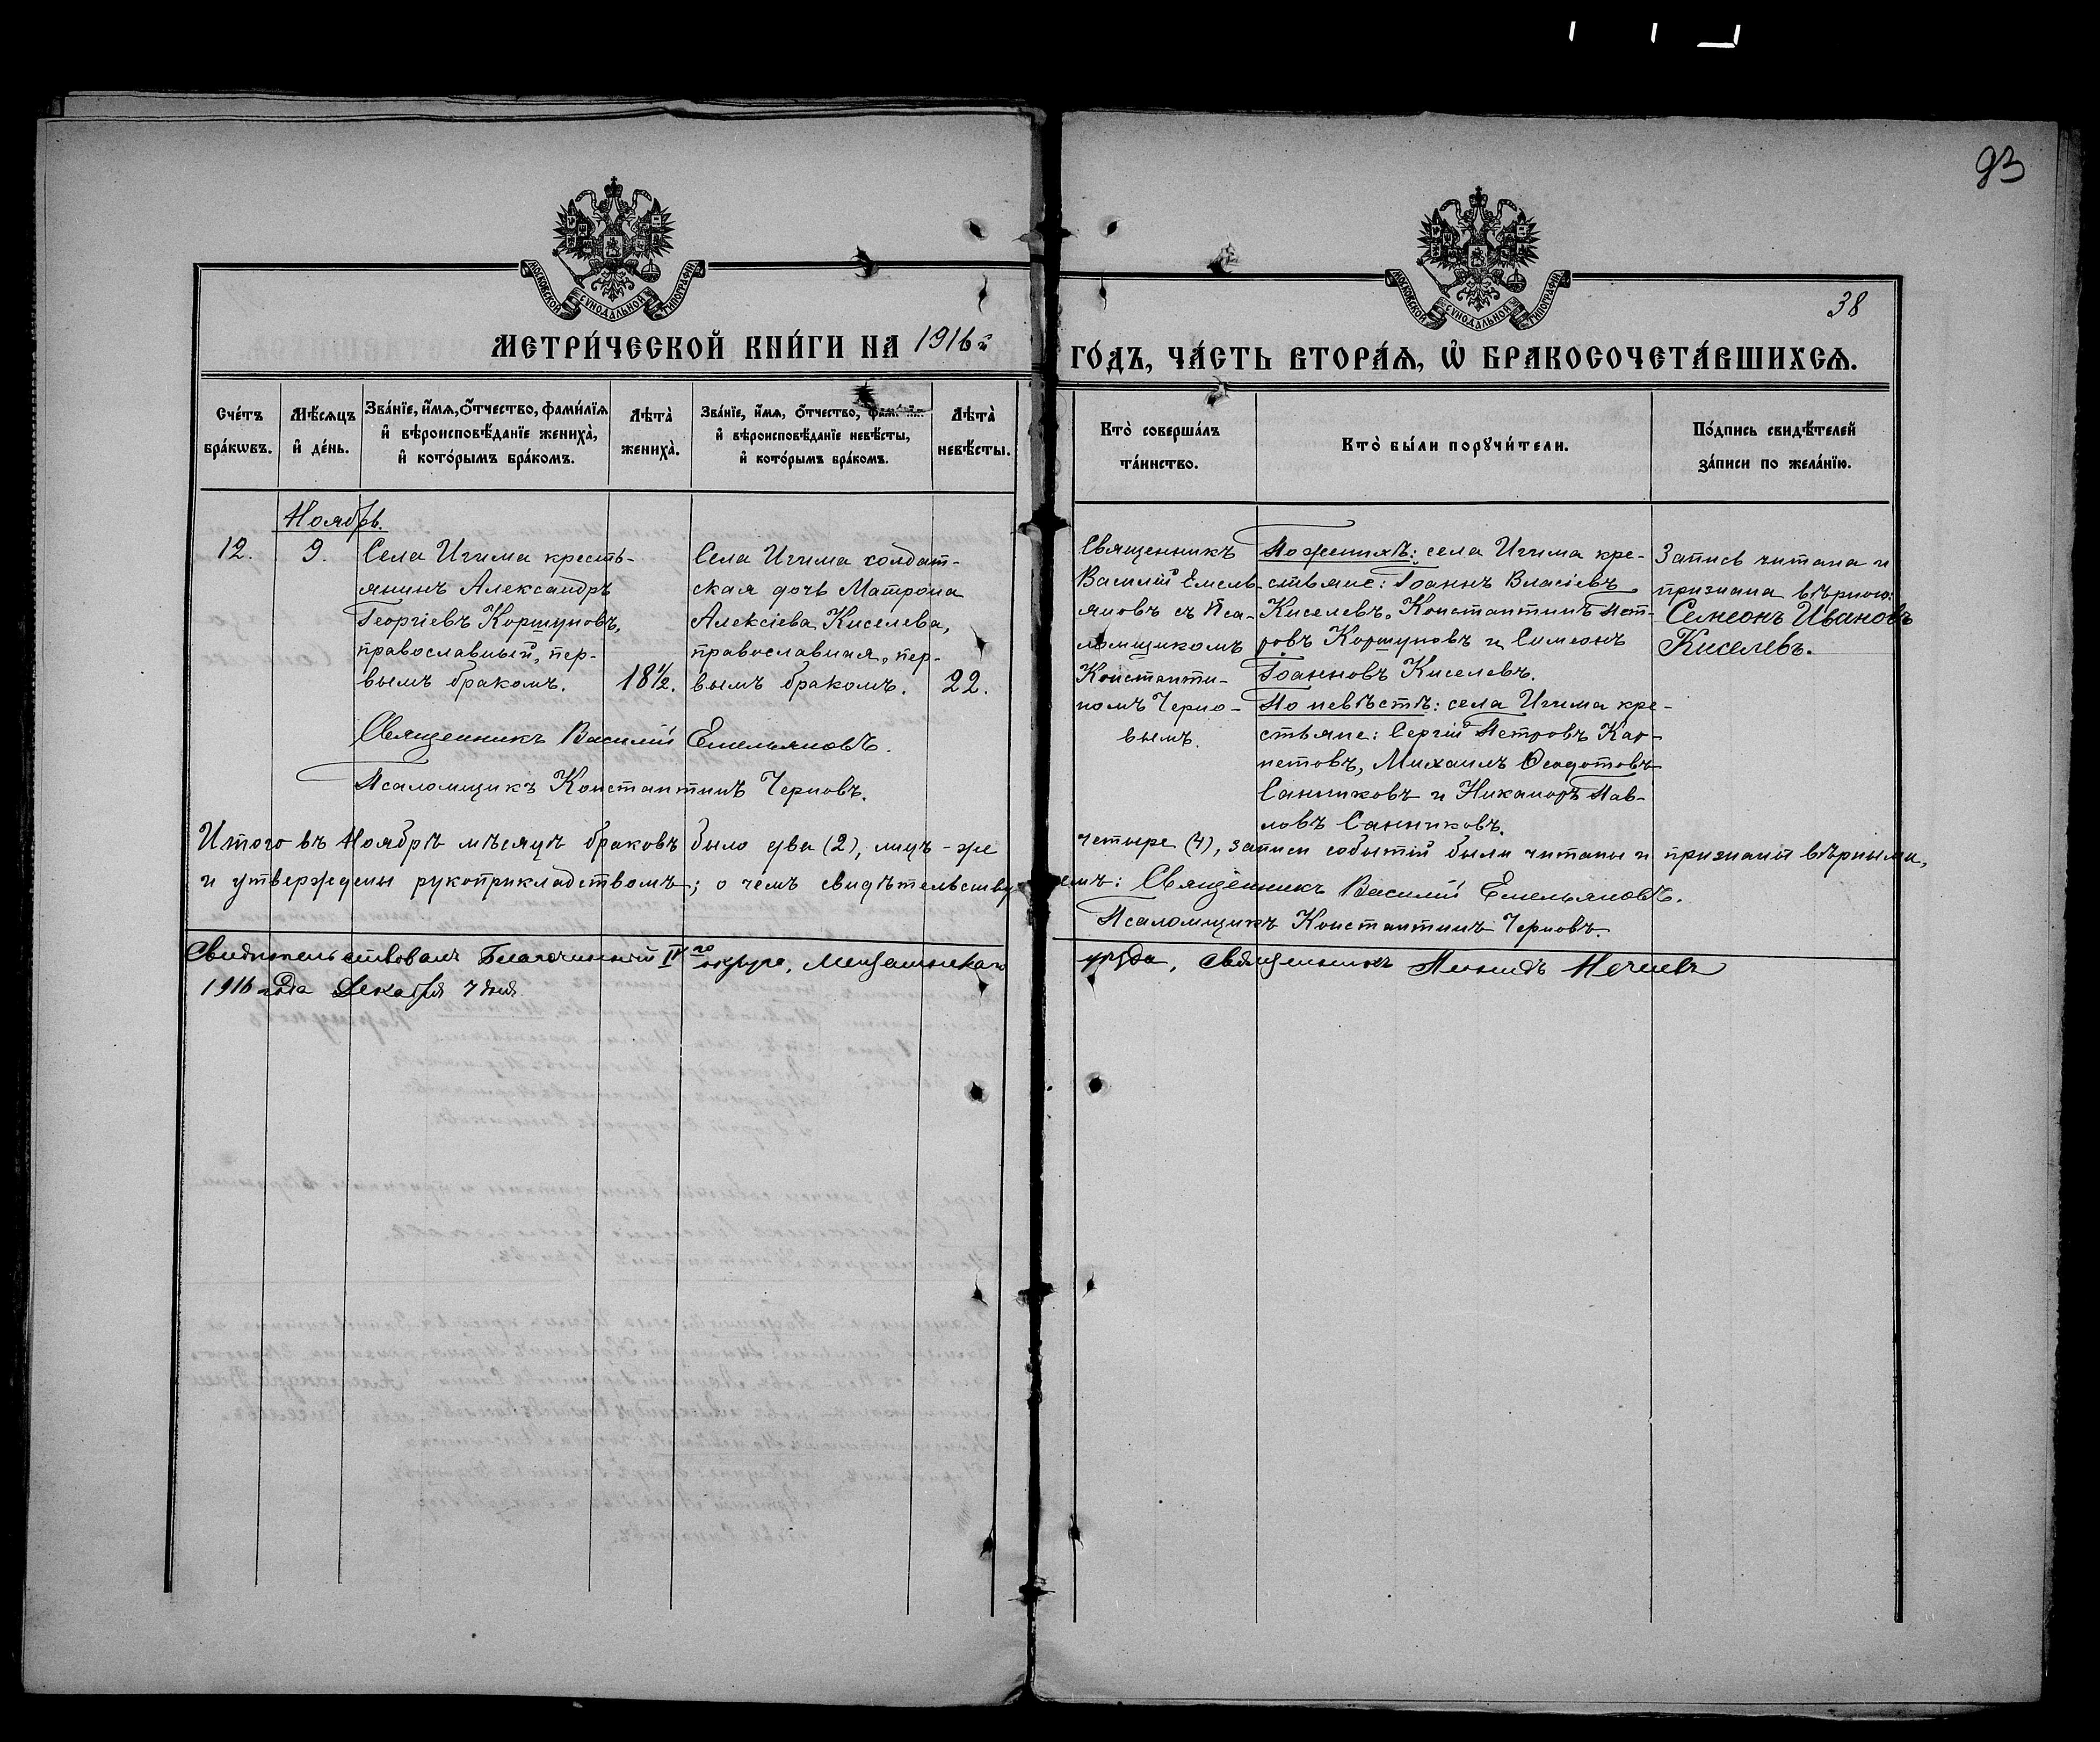 93
МОСКОВСКОЙ СѴНОДАЛЬНОЙ ТИПОГРАФІИ
МОСКОВСКОЙ СѴНОДАЛЬНОЙ ТИПОГРАФІИ
38
МЕТРИ́ЧЕСКОЙ КНИ́ГИ НА 1916й
ГО́ДЪ, ЧА́СТЬ ВТОРА́Ѧ, Ѽ БРАКОСОЧЕТА́ВШИХСѦ.
Сче́тъ бра́кѡвъ.
Мѣ́сѧцъ и҆ де́нь.
Зва́нїе, и҆́мѧ, ѻ҆́тчество, фами́лїѧ
и҆ вѣроисповѣ́данїе жениха̀,
и҆ кото́рымъ бра́комъ.
Лѣта̀ жениха̀.
Зва́нїе, и҆́мѧ, ѻ҆́тчество,
и҆ вѣроисповѣ́данїе невѣ́сты,
и҆ кото́рымъ бра́комъ.
Лѣта̀ невѣ́сты.
Кто̀ соверша́лъ
та́инство.
Кто̀ бы́ли порꙋчи́тели.
По́дпись свидѣ́телей
за́писи по жела́нїю.
Ноябрь.
12.
9.
Села Игима кресть-
янинъ Александръ
Георгіевъ Коршуновъ,
православный, пер-
вымъ бракомъ.
18½.
Села Игима солдат-
ская дочь Матрона
Алексіева Киселева,
православная, пер-
вымъ бракомъ.
22.
Священникъ
Василій Емель-
яновъ съ Пса-
ломщикомъ
Константи-
номъ Черно-
вымъ.
По женихѣ: села Игима кре-
стьяне: Іоаннъ Власіевъ
Киселевъ, Константинъ Пет-
ровъ Коршуновъ и Симеонъ
Іоанновъ Киселевъ.
По невѣстѣ: села Игима кре-
стьяне: Сергій Петровъ Кар-
петовъ, Михаилъ Ѳеодотовъ
Санниковъ и Никаноръ Пав-
ловъ Санниковъ.
Запись читана и
признана вѣрною:
Семеонъ Ивановъ
Киселевъ.
Священникъ Василій Емельяновъ.
Псаломщикъ Константинъ Черновъ.
Итого въ Ноябрѣ мѣсяцѣ браковъ было два (2), лицъ-же четыре (4), записи событій были читаны и признаны вѣрными,
и утверждены рукоприкладствомъ; о чемъ свидѣтельствуемъ: Священникъ Василій Емельяновъ.
Псаломщикъ Константинъ Черновъ.
Свидѣтельствовалъ Благочинный IVго округа, Мензелинскаго уѣзда, Священникъ
1916 года Декабря 7 дня